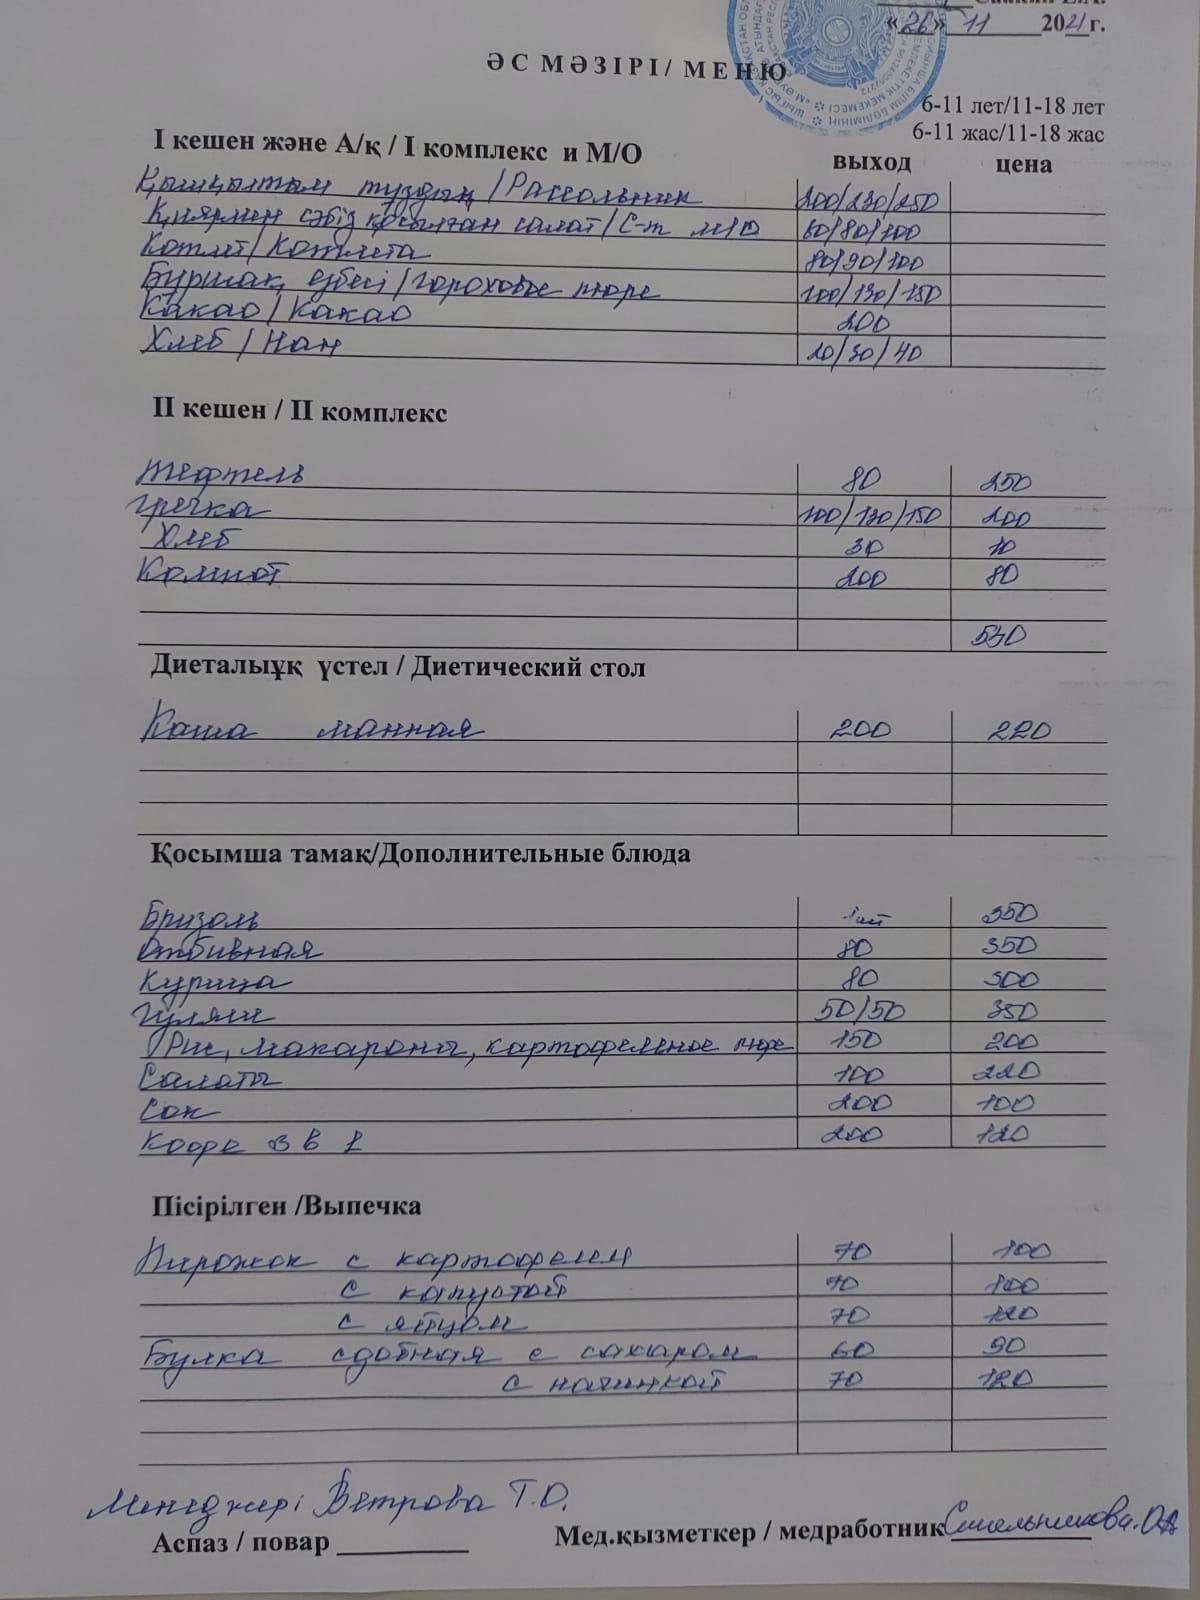 «26» 11 2021 г.
ӘС МӘЗІРІ/ МЕНЮ
6-11 лет/11-18 лет
6-11 жас/11-18 жас
І кешен және А/қ / І комплекс и М/О выход цена
Қышқылтым тұздық/Рассольник 200/230/250
Қиярмен сәбіз қосылған салат/С-т 60/80/100
Котлет/Котлета 80/90/100
Бұршақ езбесі/Гороховое пюре 100/130/150
Какао/Какао 200
Хлеб/Нан 20/30/40
ІІ кешен / ІІ комплекс
Тефтель 80 250
Гречка 100/130/150 200
Хлеб 30 10
Компот 200 80
540
Диеталыұқ үстел / Диетический стол
Каша манная 200 220
Қосымша тамақ/Дополнительные блюда
Бризоль 1шт 350
Отбивная 80 350
Курица 80 300
Гуляш 50/50 350
Рис, макароны, картофельное пюре 150 200
Салаты 100 220
Сок 200 100
Кофе 3 в 1 200 120
Пісірілген /Выпечка
Пирожок с картофелем 70 100
с капустой 70 100
с яйцом 70 120
Булка сдобная с сахаром 60 90
с начинкой 70 120
Менеджері Ветрова Т.О.
Аспаз / повар
Мед.қызметкер / медработник